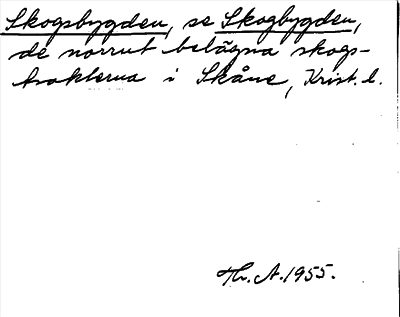 Skogsbygden, se Skogbygden,
de norrut belägna skogs-
trakterna i Skåne, Krist. l.
Th. A. 1955.